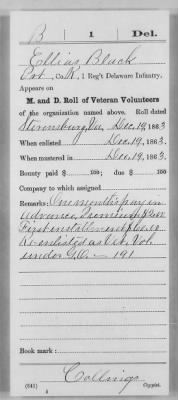 B | 1 | Del.
Ellias Black
Pvt, Co. K, 1 Reg't Delaware Infantry.
Appears on
M. and D. Roll of Veteran Volunteers
of the organization named above. Roll dated
Stevensburg, Va, Dec. 19, 1863
When enlisted Dec. 19, 1863.
When mustered in Dec. 19, 1863.
Bounty paid $ 100; due $ 100
Company to which assigned
Remarks: One month's pay in
advance, Premium $2.00
First installment
Re-enlisted as Vet. Vol.
under G.O. 191
Book mark:
Collings
(641) Copyist.